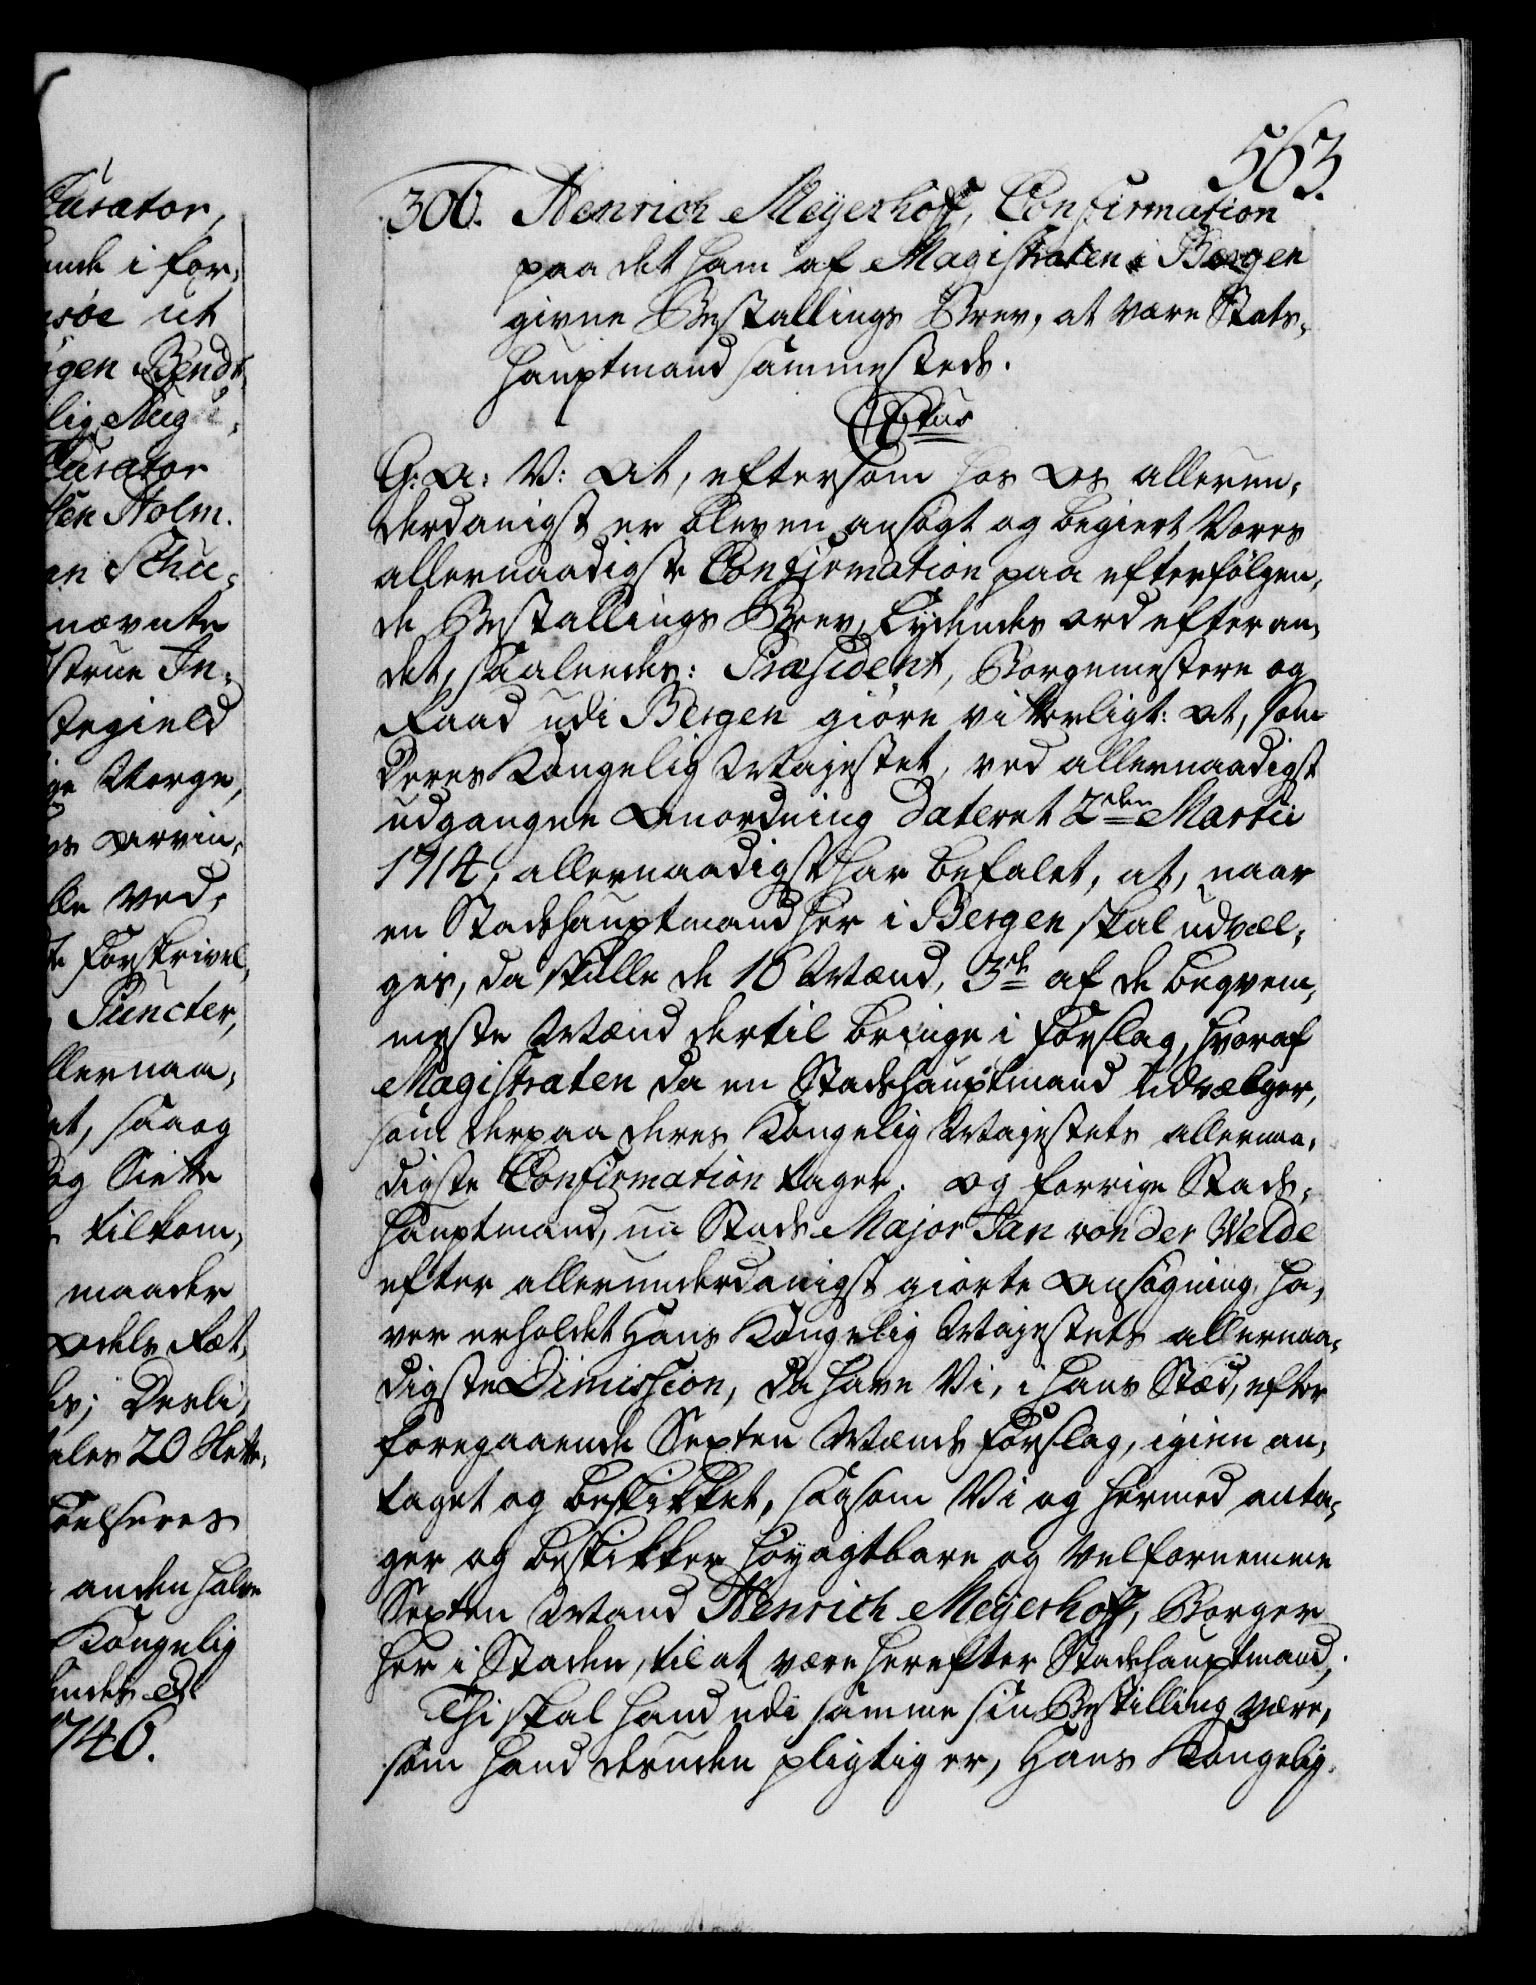 Curator,
ende i for-
usøe ut
ygen Bendt
lig Aug
Curator
sen Holm.
an Schu-
nævnte
strue In-
steqield
ge Værge,
os Arvin-
lle ved-
te forskrivel
Puncter,
llernaa-
et, saa og
og Sitte
tilkom-
maader
Odels Ræt
es; Derli-
eles 20 Rette-
Troelseres
anden halve
Kongelig
1746.
563.
306. Henrich Meyerhoff, Confirmation
paa det ham af Magistraten i Bergen
givne Bestallings Brev, at være Stats-
hauptmand sammesteds.
Cptus
G: A: V: At, eftersom hos Os allerun-
derdanigst er bleven ansøgt og begiert Vores
allernaadigste Confirmation paa efterfølgen-
de Bestallings Brev, lydendes ord efter an-
det, saaledes: Præsident, Borgemestere og
Raad udi Bergen giøre vitterligt: At, som
Deres Kongelig Mayestet, ved allernaadigst
udgangne Anordning Dateret 2den Martii
1714, allernaadigst har befalet, at, naar
en Stadshauptmand her i Bergen skal udvæl-
ges, da skulle de 16 Mænd, 3de af de beqvem-
meste Mænd dertil bringe i Forslag, hvoraf
Magistraten da en Stadshauptmand udvælger,
som derpaa deres Kongelig Mayestets allernaa-
digste Confirmation tager. Og forrige Stads-
hauptmand, nu Stads Major Jan von der Velde
efter allerunderdanigst giorte Ansøgning, ha-
ver erholdet Hans Kongelig Mayestets allernaa-
digste Dimission, da have Vi, i hans Stæd, efter
foregaaende Sexten Mænds Forslag, igien an-
taget og beskikket, saasom Vi og hermed anta-
ger og beskikker høyagtbare og Velfornemme
Sexten Mand Henrich Meyerhoff, Borger
her i Staden, til at være herefter Stadshauptmand,
Thi skal hand udi samme sin Bestilling være,
som hand desuden pligtig er, Hans Kongelig